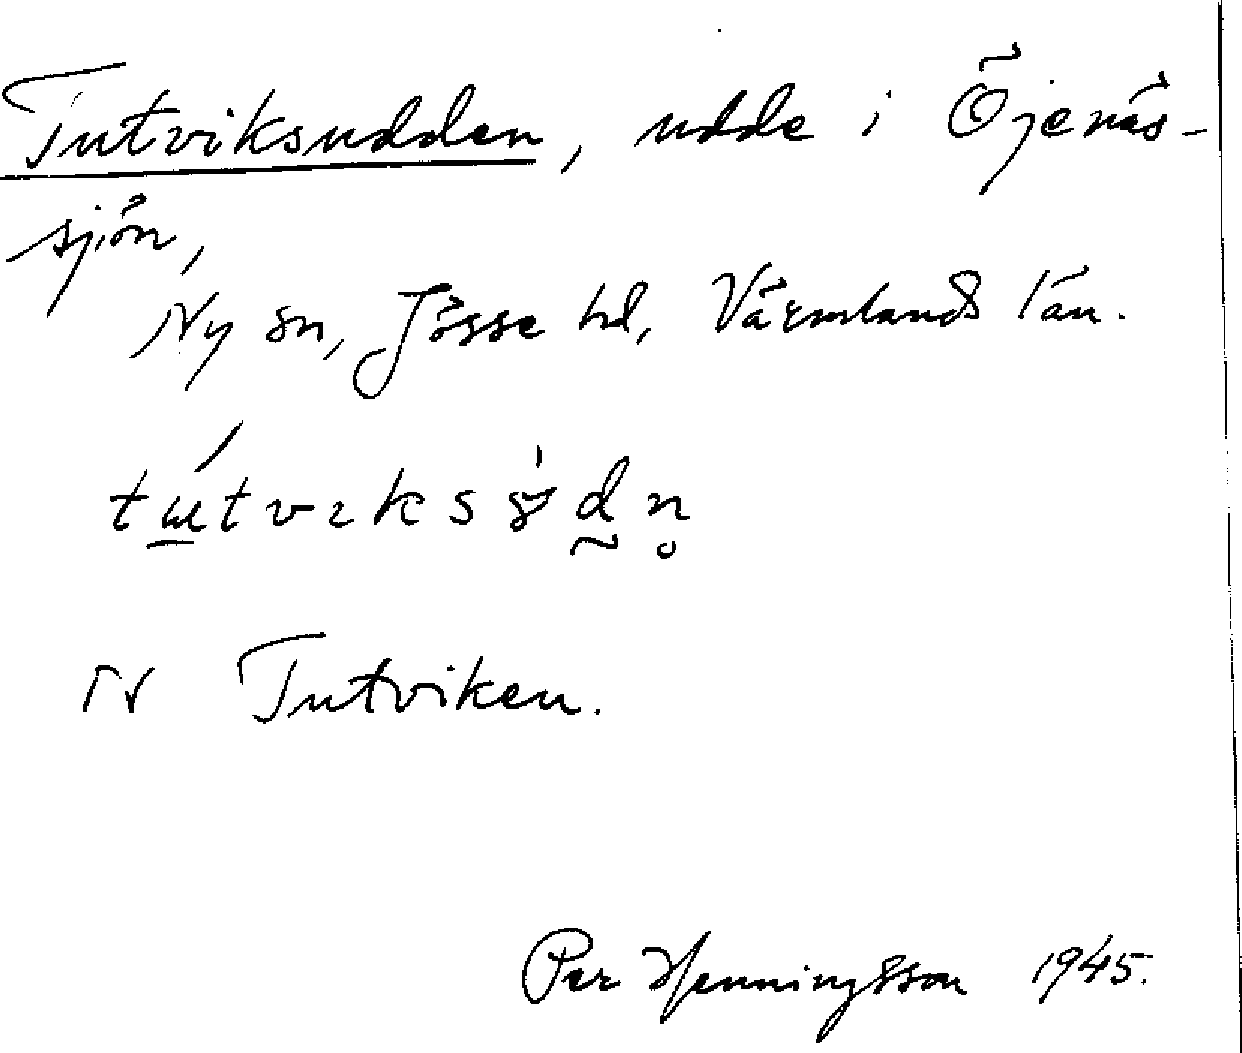 Tutviksudden, udde i Öjenäs-
sjön,
Ny sn, Jösse hd, Värmlands län.
N Tutviken.
Per Henningsson 1945.